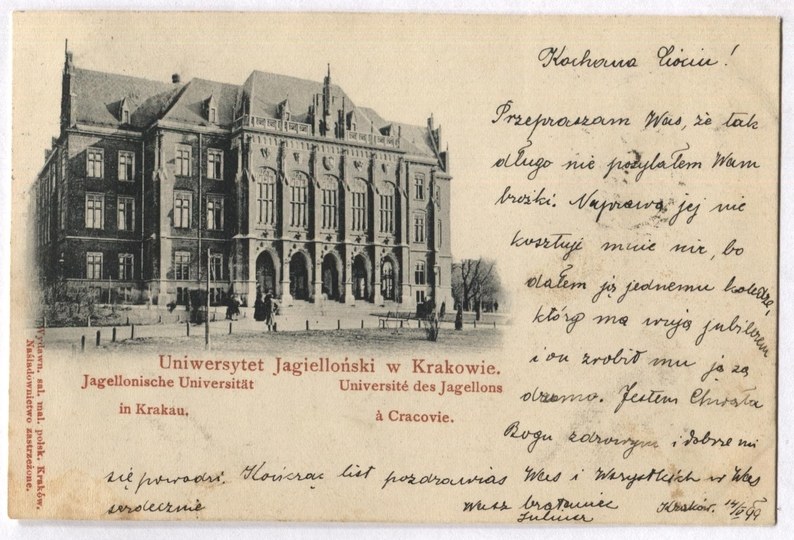 Kochana Ciociu!
Przepraszam Was, że tak
długo nie posyłałem Wam
brożki. Naprawa jej nic
kosztuje mnie nic, bo
dałem ją jednemu koledze,
który ma wuja jubilerem
i on zrobił mu ją za
darmo. Jestem Chwała
Bogu zdrowym i dobrze mi
się powodzi. Kończąc list pozdrawiam Was i Wszystkich w Was
serdecznie
Wasz brataniec
Juliusz
Kraków. 14/II 99
Uniwersytet Jagielloński w Krakowie.
Jagellonische Universität
in Krakau.
Université des Jagellons
à Cracovie.
Wydawn. sal. mal. polsk. Kraków.
Naśladownictwo zastrzeżone.